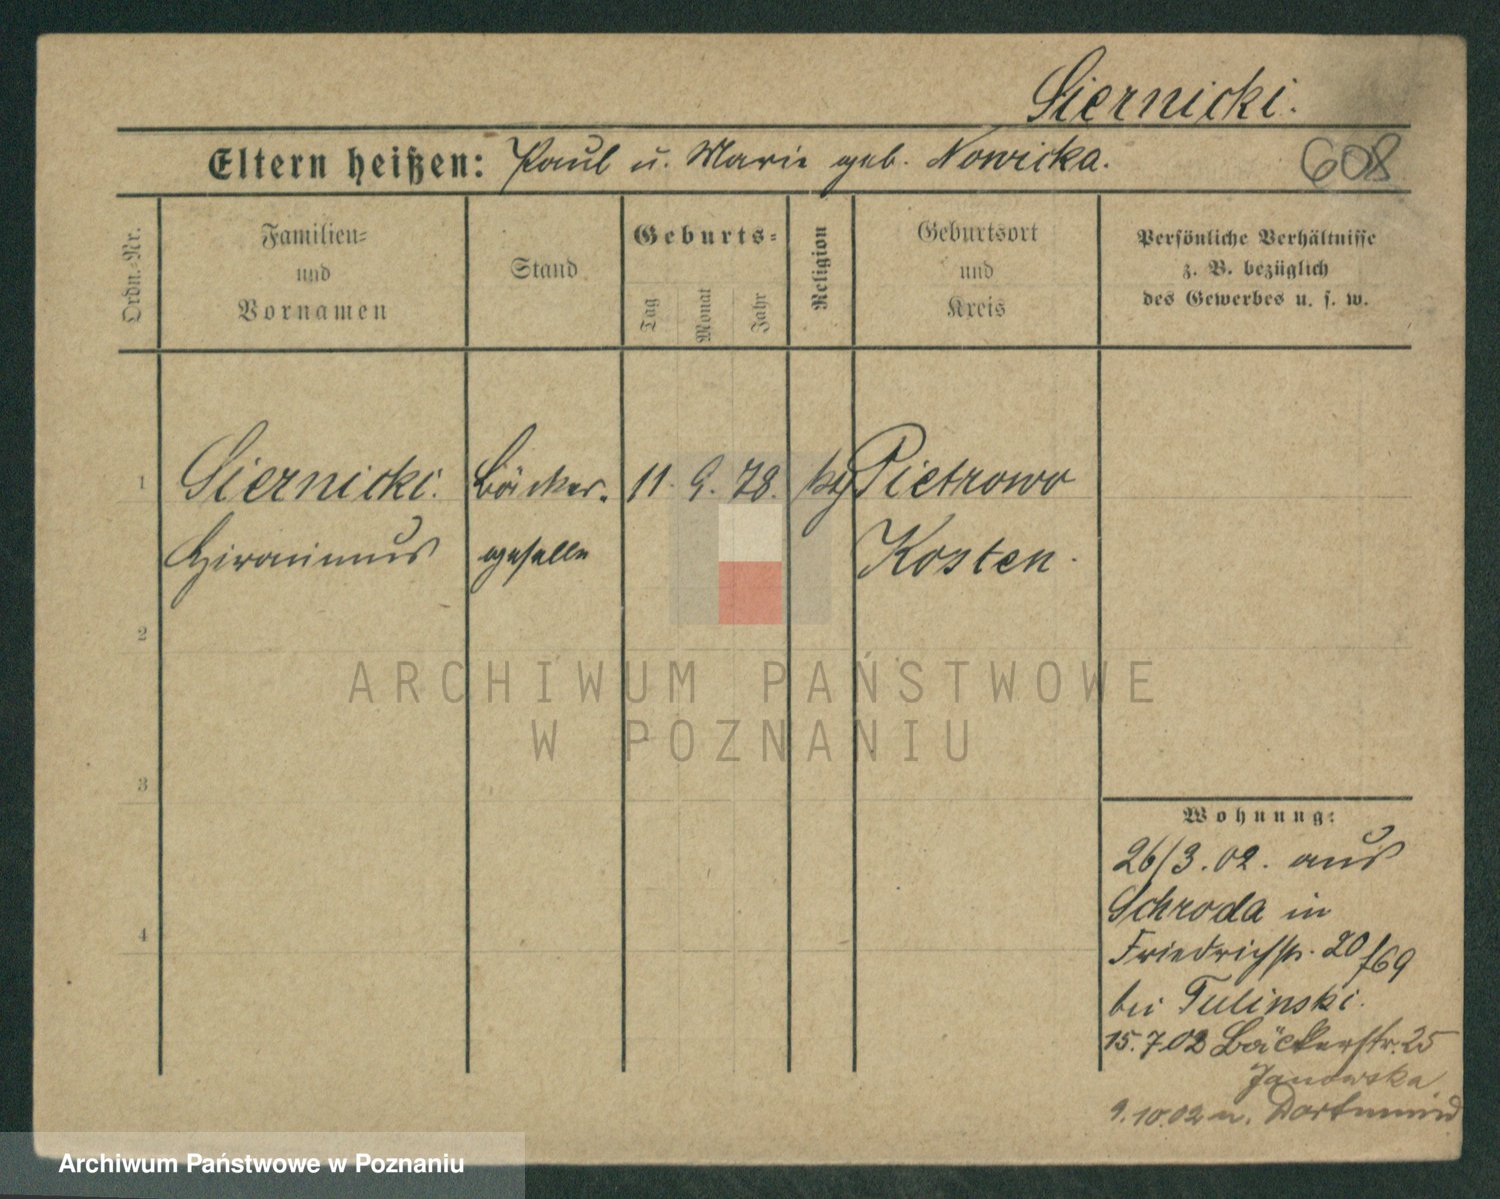 Siernicki.
Eltern heißen: Paul u. Marie geb. Nowicka.
608
Ordn.-Nr.
Familien-
und
Vornamen
Stand
Geburts-
Tag
Monat
Jahr
Religion
Geburtsort
und
Kreis
Persönliche Verhältnisse
z. B. bezüglich
des Gewerbes u. s. w.
1 Siernicki. Bäcker- 11. 9. 78. Pietrowo
Hironimus geselle Kosten.
2
ARCHIWUM PAŃSTWOWE
W POZNANIU
3
4
Wohnung:
26/3.02. aus
Schroda in
Friedrichstr. 20 f69
bei Tulinski.
15.7.02 Bäckerstr. 25
Janowska
9.10.02 n. Dortmund
Archiwum Państwowe w Poznaniu